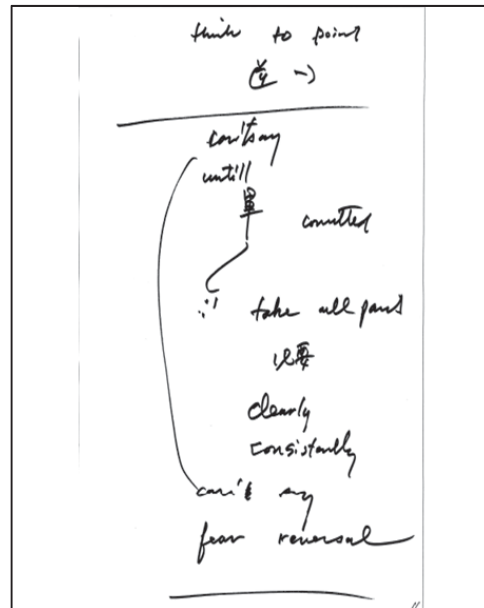 think to point
can't say
untill
単 comitted
take all part
必要
clearly
consistantly
can't say
fear reversal